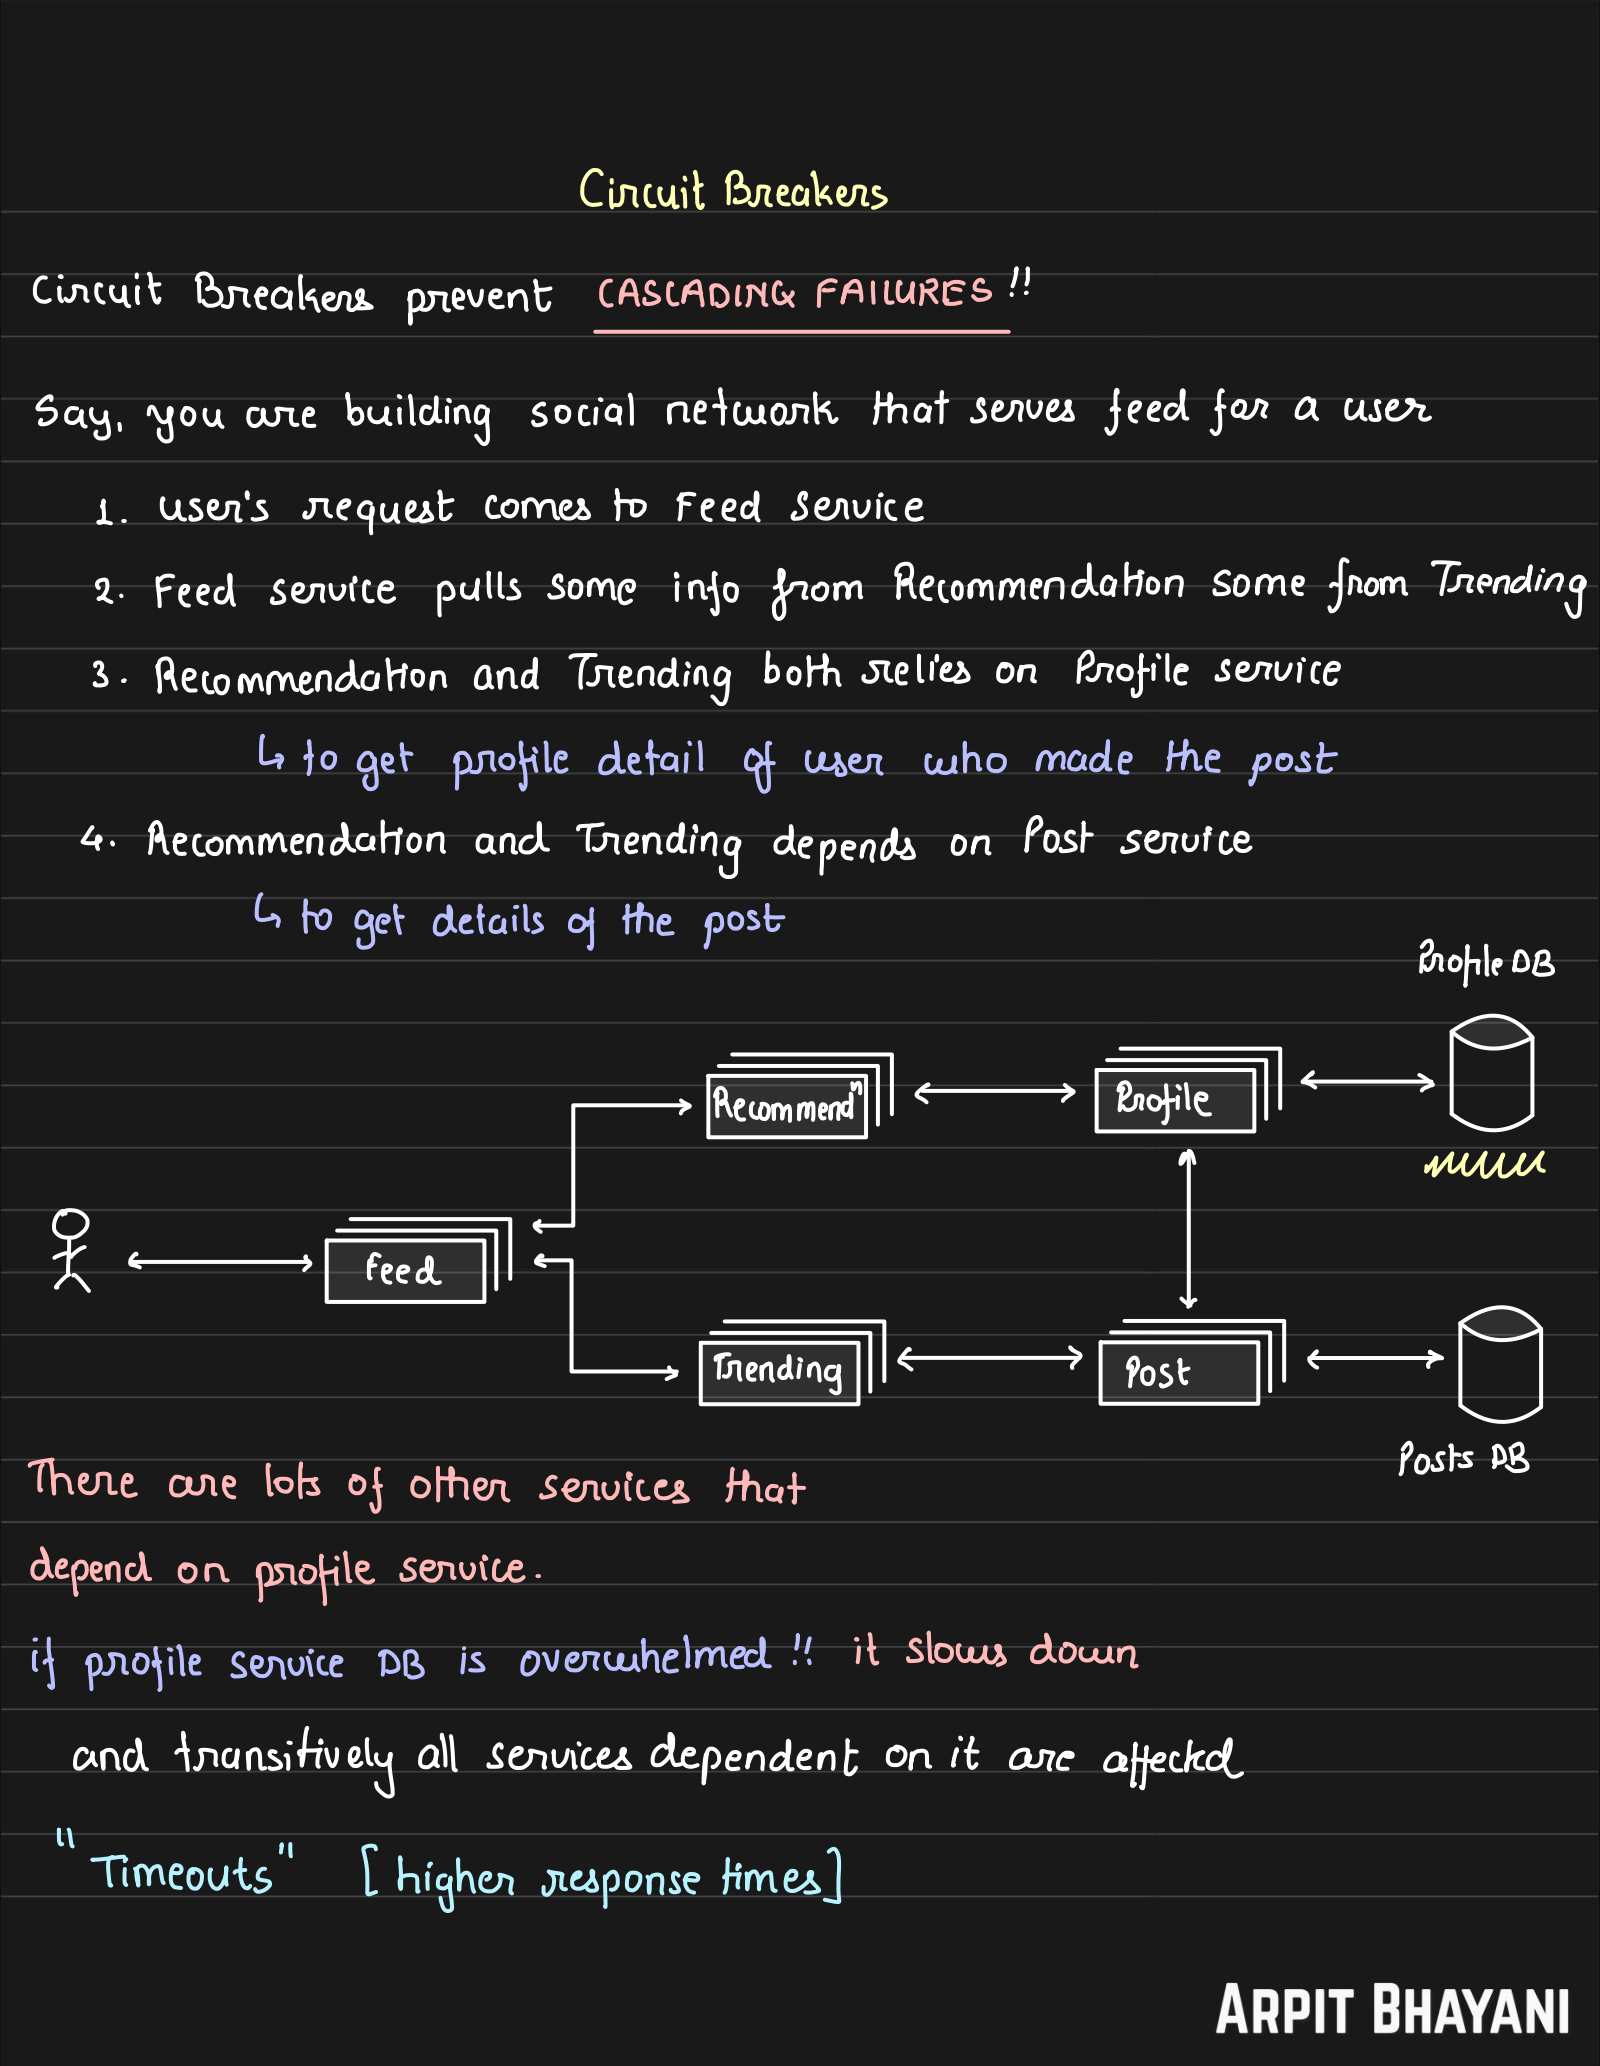 Circuit Breakers
Circuit Breakers prevent CASCADING FAILURES !!
Say, you are building social network that serves feed for a user
1. user's request comes to Feed Service
2. Feed service pulls some info from Recommendation some from Trending
3. Recommendation and Trending both relies on Profile service
↳ to get profile detail of user who made the post
4. Recommendation and Trending depends on Post service
↳ to get details of the post
Profile DB
Recommendⁿ
Profile
Feed
Trending
Post
Posts DB
There are lots of other services that
depend on profile service.
if profile service DB is overwhelmed !! it slows down
and transitively all services dependent on it are affected
"Timeouts" [higher response times]
ARPIT BHAYANI